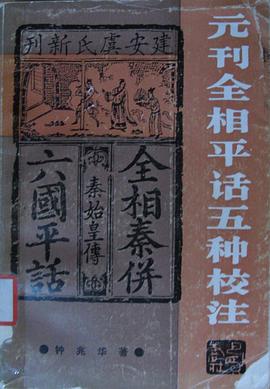 元刊全相平话五种校注
建安虞氏新刊
全相秦併
秦始皇傳
六國平話
●钟兆华著●